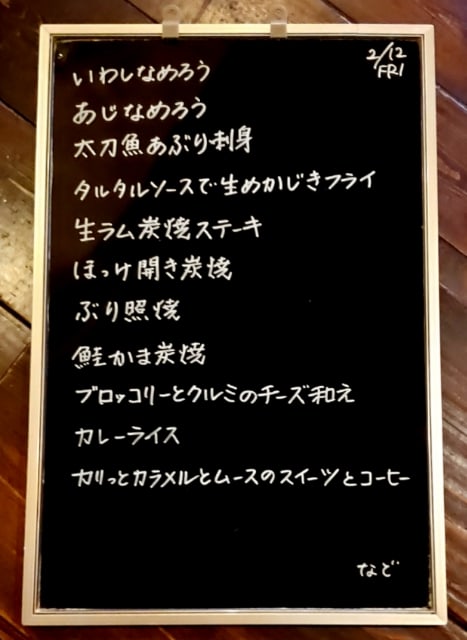 2/12
FRI
いわしなめろう
あじなめろう
太刀魚あぶり刺身
タルタルソースで生めかじきフライ
生ラム炭焼ステーキ
ほっけ開き炭焼
ぶり照焼
鮭かま炭焼
ブロッコリーとクルミのチーズ和え
カレーライス
カリっとカラメルとムースのスイーツとコーヒー
など